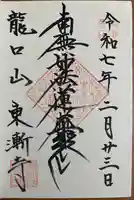 令和七年二月廿三日
南無妙法蓮華経
龍口山東漸寺